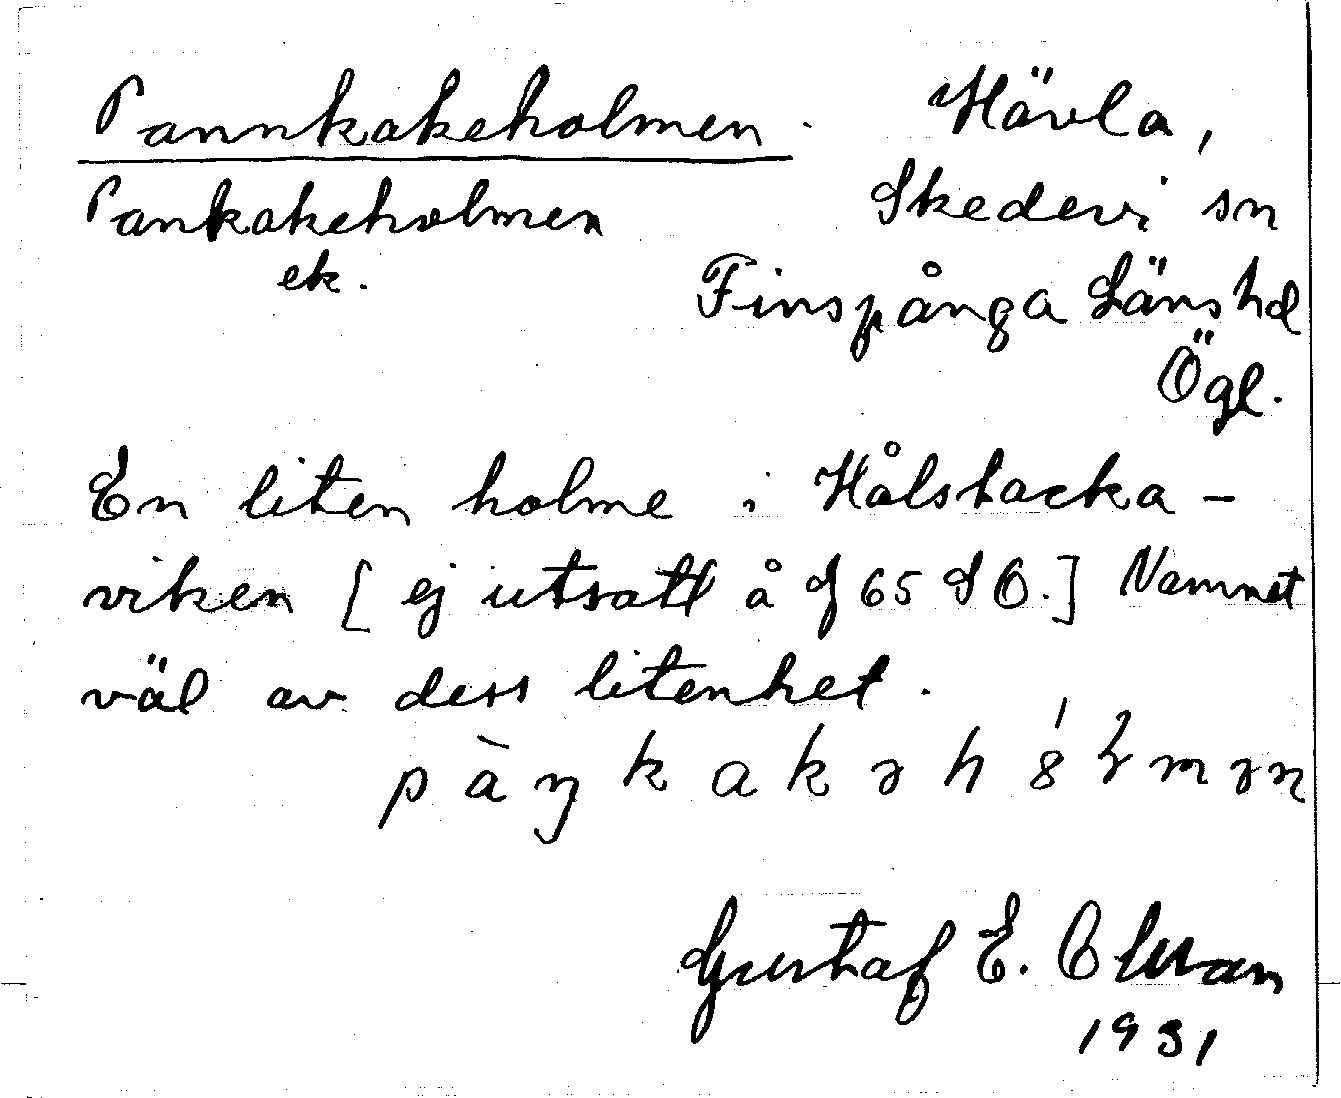 Pannkakeholmen. Hävla,
Pankakeholmen Skedevi sn
ek. Finspånga Läns hd
Ögl.
En liten holme i Hålstacka-
viken [ej utsatt å Gf 65 SO.] Namnet
väl av dess litenhet.
Gustaf E. Olsson
1931